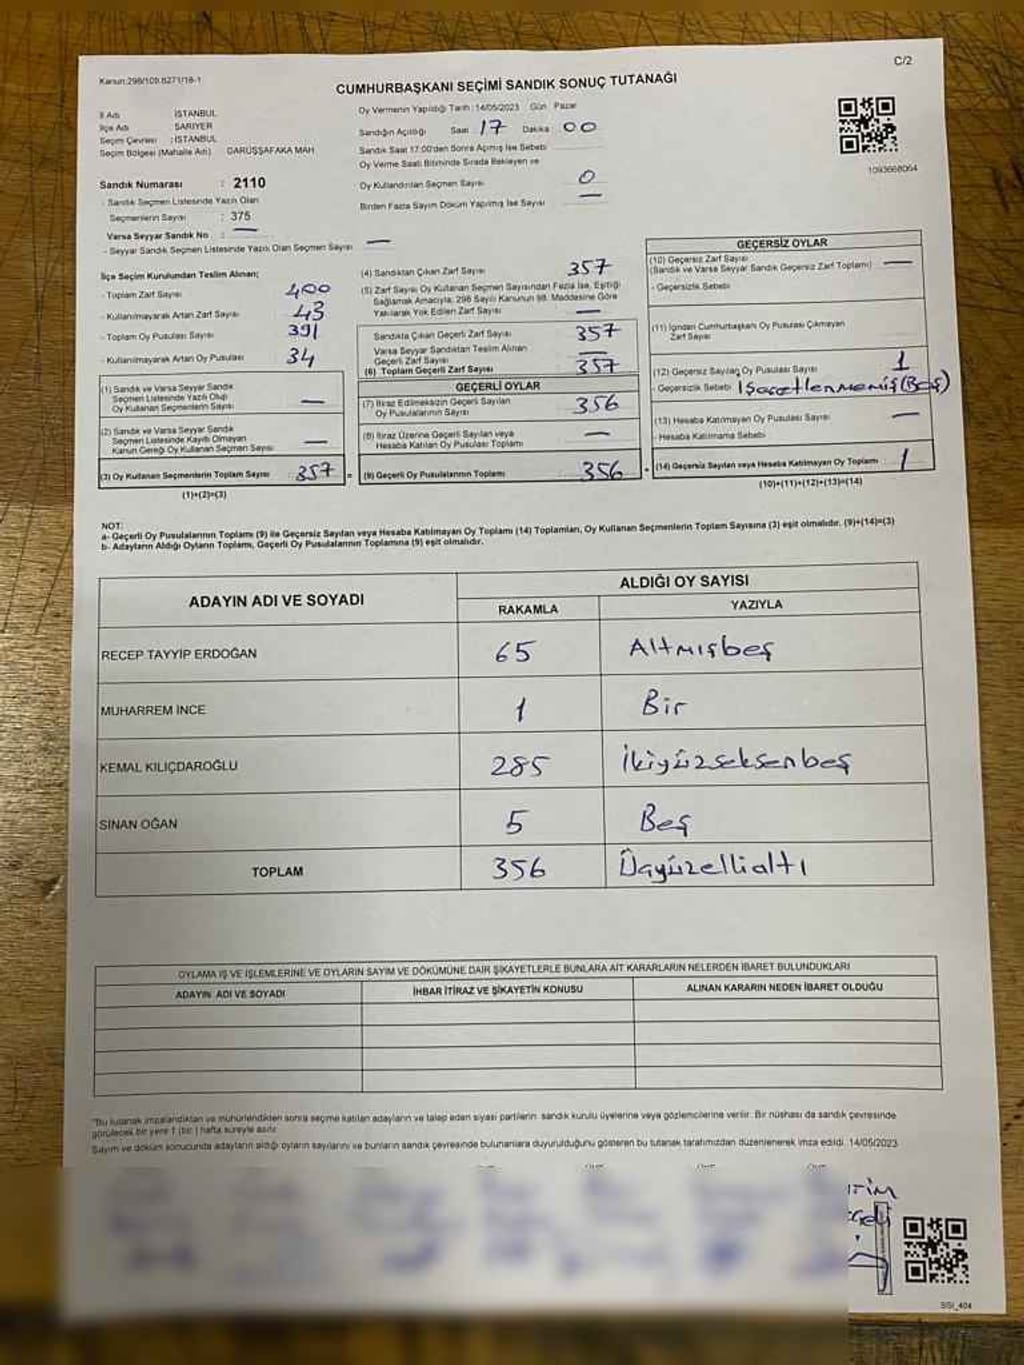 C/2
Kanun:298/109.6271/18-1
CUMHURBAŞKANI SEÇİMİ SANDIK SONUÇ TUTANAĞI
İl Adı : İSTANBUL
İlçe Adı : SARIYER
Seçim Çevresi : İSTANBUL
Seçim Bölgesi (Mahalle Adı) : DARÜŞŞAFAKA MAH.
Sandık Numarası : 2110
- Sandık Seçmen Listesinde Yazılı Olan
Seçmenlerin Sayısı : 375
Varsa Seyyar Sandık No : —
- Seyyar Sandık Seçmen Listesinde Yazılı Olan Seçmen Sayısı —
Oy Vermenin Yapıldığı Tarih :14/05/2023 Gün : Pazar
Sandığın Açıldığı Saat 17 Dakika 00
Sandık Saat 17:00'den Sonra Açılmış İse Sebebi
Oy Verme Saati Bitiminde Sırada Bekleyen ve
Oy Kullandırılan Seçmen Sayısı 0
Birden Fazla Sayım Döküm Yapılmış İse Sayısı —
1093668064
İlçe Seçim Kurulundan Teslim Alınan;
- Toplam Zarf Sayısı 400
- Kullanılmayarak Artan Zarf Sayısı 43
- Toplam Oy Pusulası Sayısı 391
- Kullanılmayarak Artan Oy Pusulası 34
(1) Sandık ve Varsa Seyyar Sandık
Seçmen Listesinde Yazılı Olup
Oy Kullanan Seçmenlerin Sayısı —
(2) Sandık ve Varsa Seyyar Sandık
Seçmen Listesinde Kayıtlı Olmayan
Kanun Gereği Oy Kullanan Seçmen Sayısı —
(3) Oy Kullanan Seçmenlerin Toplam Sayısı 357 =
(1)+(2)=(3)
(4) Sandıktan Çıkan Zarf Sayısı 357
(5) Zarf Sayısı Oy Kullanan Seçmen Sayısından Fazla İse, Eşitliği
Sağlamak Amacıyla, 298 Sayılı Kanunun 98. Maddesine Göre
Yakılarak Yok Edilen Zarf Sayısı —
Sandıkta Çıkan Geçerli Zarf Sayısı 357
Varsa Seyyar Sandıktan Teslim Alınan
Geçerli Zarf Sayısı —
(6) Toplam Geçerli Zarf Sayısı 357
GEÇERLİ OYLAR
(7) İtiraz Edilmeksizin Geçerli Sayılan
Oy Pusulalarının Sayısı 356
(8) İtiraz Üzerine Geçerli Sayılan veya
Hesaba Katılan Oy Pusulası Toplamı —
(9) Geçerli Oy Pusulalarının Toplamı 356 +
GEÇERSİZ OYLAR
(10) Geçersiz Zarf Sayısı —
(Sandık ve Varsa Seyyar Sandık Geçersiz Zarf Toplamı)
- Geçersizlik Sebebi
(11) İçinden Cumhurbaşkanı Oy Pusulası Çıkmayan
Zarf Sayısı
(12) Geçersiz Sayılan Oy Pusulası Sayısı 1
- Geçersizlik Sebebi İşaretlenmemiş(Boş)
(13) Hesaba Katılmayan Oy Pusulası Sayısı —
- Hesaba Katılmama Sebebi
(14) Geçersiz Sayılan veya Hesaba Katılmayan Oy Toplamı : 1
(10)+(11)+(12)+(13)=(14)
NOT:
a- Geçerli Oy Pusulalarının Toplamı (9) ile Geçersiz Sayılan veya Hesaba Katılmayan Oy Toplamı (14) Toplamları, Oy Kullanan Seçmenlerin Toplam Sayısına (3) eşit olmalıdır. (9)+(14)=(3)
b- Adayların Aldığı Oyların Toplamı, Geçerli Oy Pusulalarının Toplamına (9) eşit olmalıdır.
ADAYIN ADI VE SOYADI ALDIĞI OY SAYISI
RAKAMLA YAZIYLA
RECEP TAYYİP ERDOĞAN 65 Altmışbeş
MUHARREM İNCE 1 Bir
KEMAL KILIÇDAROĞLU 285 İkiyüzseksenbeş
SİNAN OĞAN 5 Beş
TOPLAM 356 Üçyüzellialtı
OYLAMA İŞ VE İŞLEMLERİNE VE OYLARIN SAYIM VE DÖKÜMÜNE DAİR ŞİKAYETLERLE BUNLARA AİT KARARLARIN NELERDEN İBARET BULUNDUKLARI
ADAYIN ADI VE SOYADI İHBAR İTİRAZ VE ŞİKAYETİN KONUSU ALINAN KARARIN NEDEN İBARET OLDUĞU
"Bu tutanak imzalandıktan ve mühürlendikten sonra seçime katılan adayların ve talep eden siyasi partilerin sandık kurulu üyelerine veya gözlemcilerine verilir. Bir nüshası da sandık çevresinde
görülecek bir yere 1 (bir) hafta süreyle asılır.
Sayım ve döküm sonucunda adayların aldığı oyların sayılarını ve bunların sandık çevresinde bulunanlara duyurulduğunu gösteren bu tutanak tarafımızdan düzenlenerek imza edildi. 14/05/2023
SSI_404